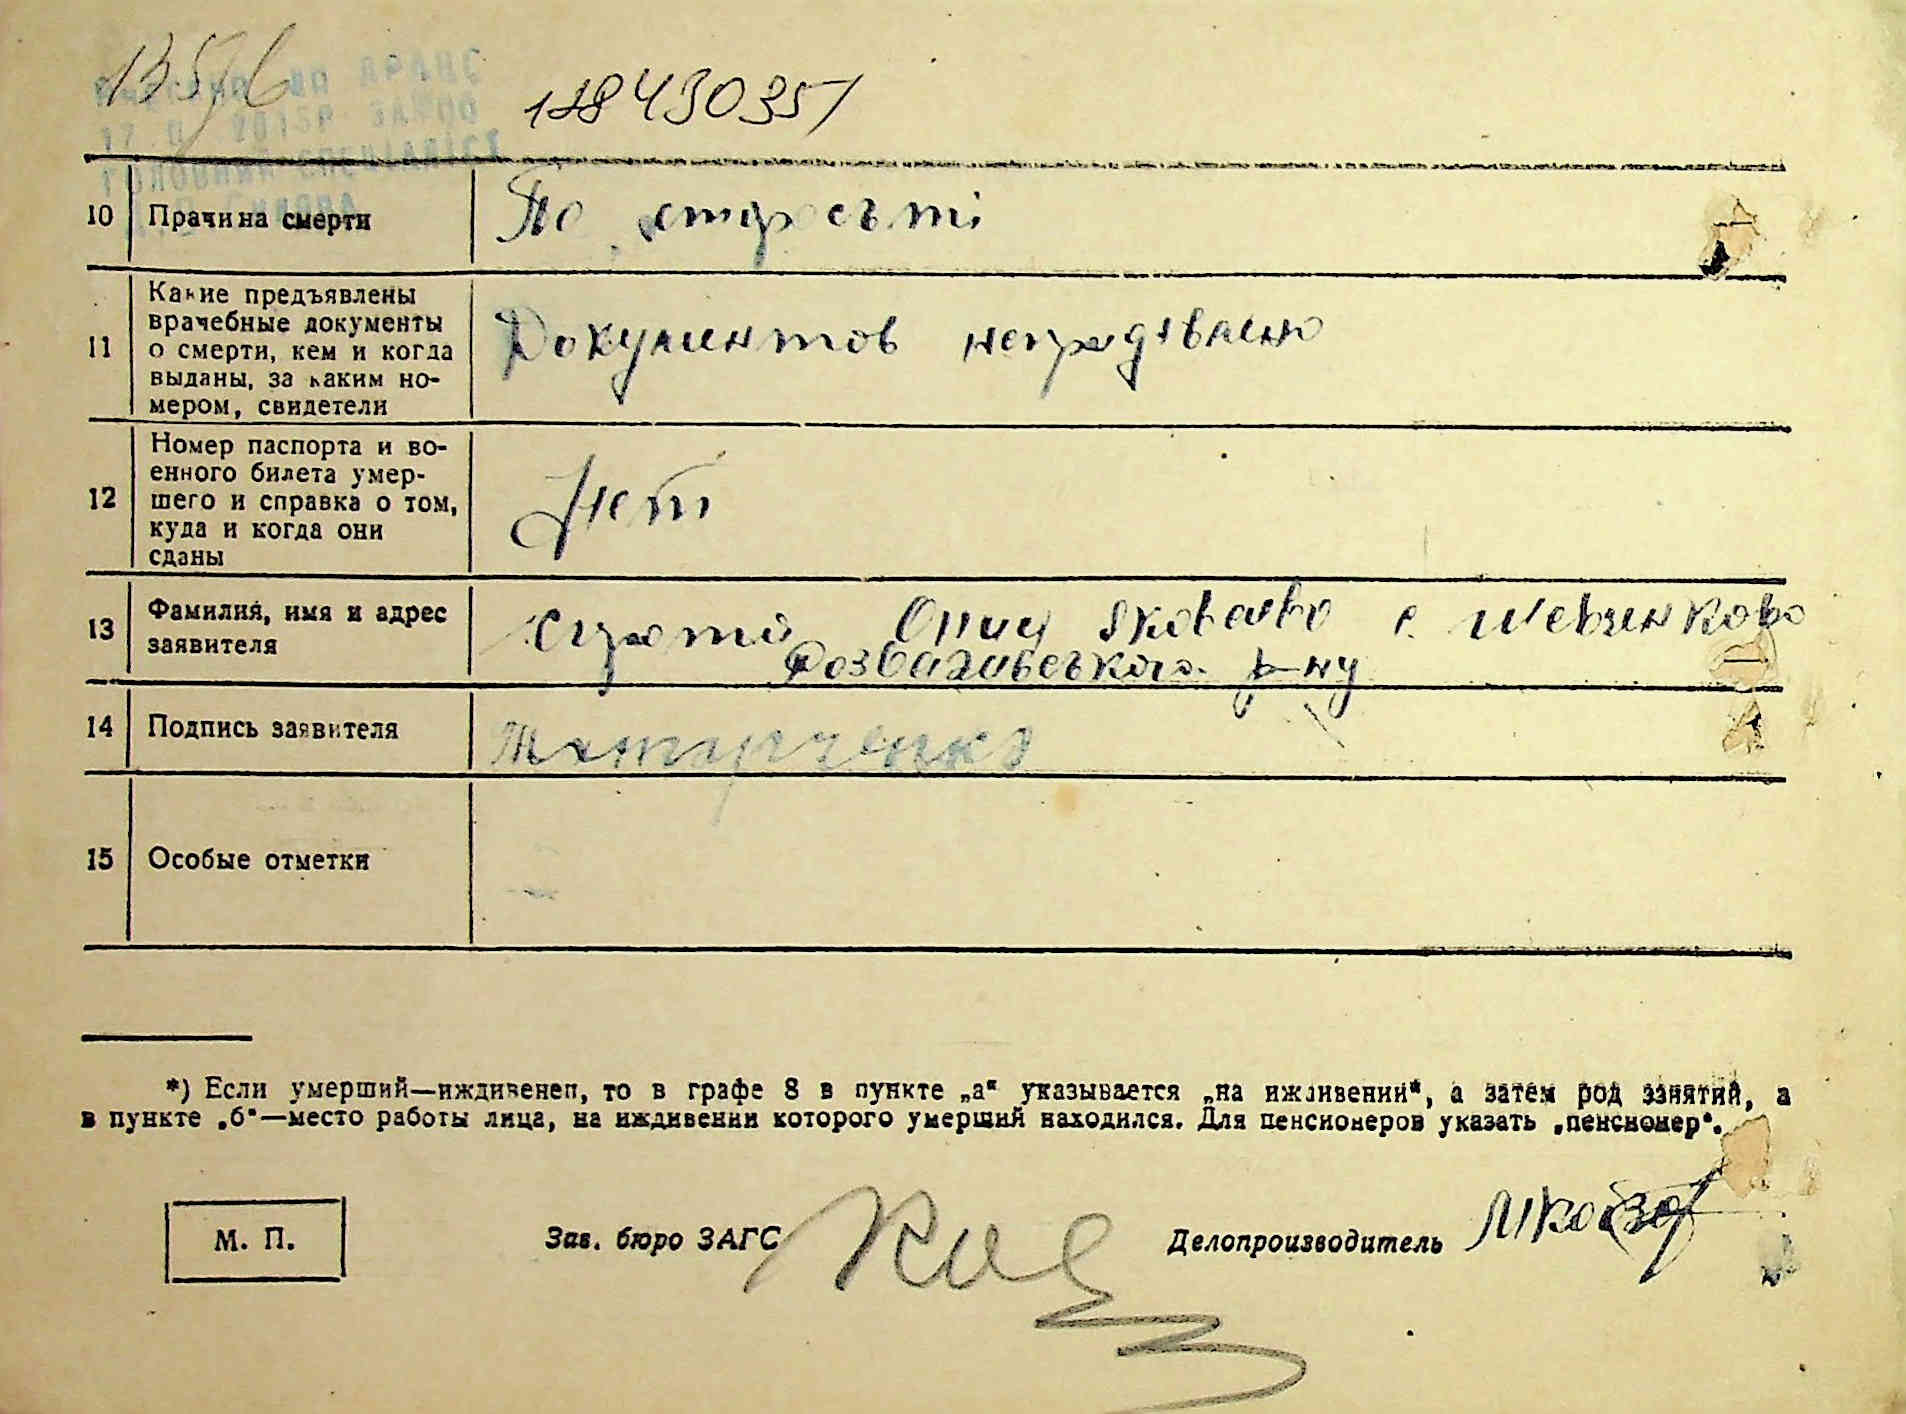 128430351
ВНЕСЕНО ДО ДРАЦС
ГОЛОВНИЙ СПЕЦІАЛІСТ
10 Причина смерти По старосъті
11 Какие предъявлены
врачебные документы
о смерти, кем и когда
выданы, за каким но-
мером, свидетели
Документов непредявлено
12 Номер паспорта и во-
енного билета умер-
шего и справка о том,
куда и когда они
сданы
Нет
13 Фамилия, имя и адрес
заявителя
Яковлево с. Шевченково
Розваживського р-ну
14 Подпись заявителя Татарченко
15 Особые отметки
*) Если умерший—иждивенец, то в графе 8 в пункте „а“ указывается „на иждивении“, а затем род занятий, а
в пункте „б“—место работы лица, на иждивении которого умерший находился. Для пенсионеров указать „пенсионер“.
М. П. Зав. бюро ЗАГС Делопроизводитель